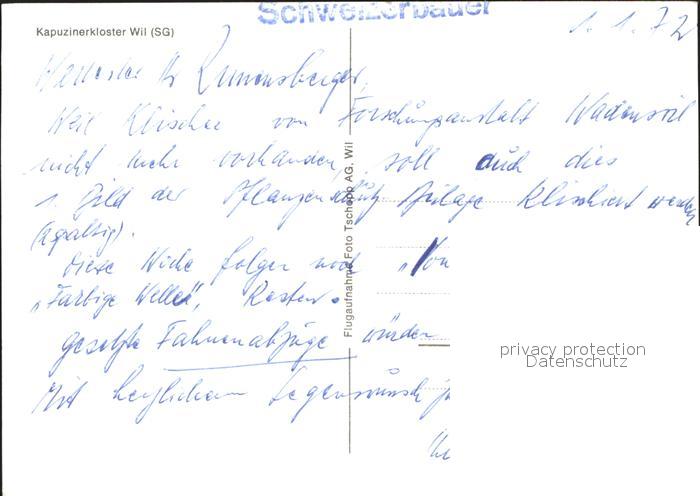 Schweizerbauer
Kapuzinerkloster Wil (SG)
1. 1. 72
Hr
Weil Klischee von Forschungsanstalt Wädenswil
nicht mehr vorhanden, soll auch dies
1. Bild der Pflanzenschutz Beilage klischiert werden
(2spaltig).
Diese Woche folgen noch "Von
"Farbige Wellen",
gesetzte Fahnenabzüge würden
Mit herzlichem Segenswunsch
Flugaufnahme Foto Tschopp AG, Wil
privacy protection
Datenschutz